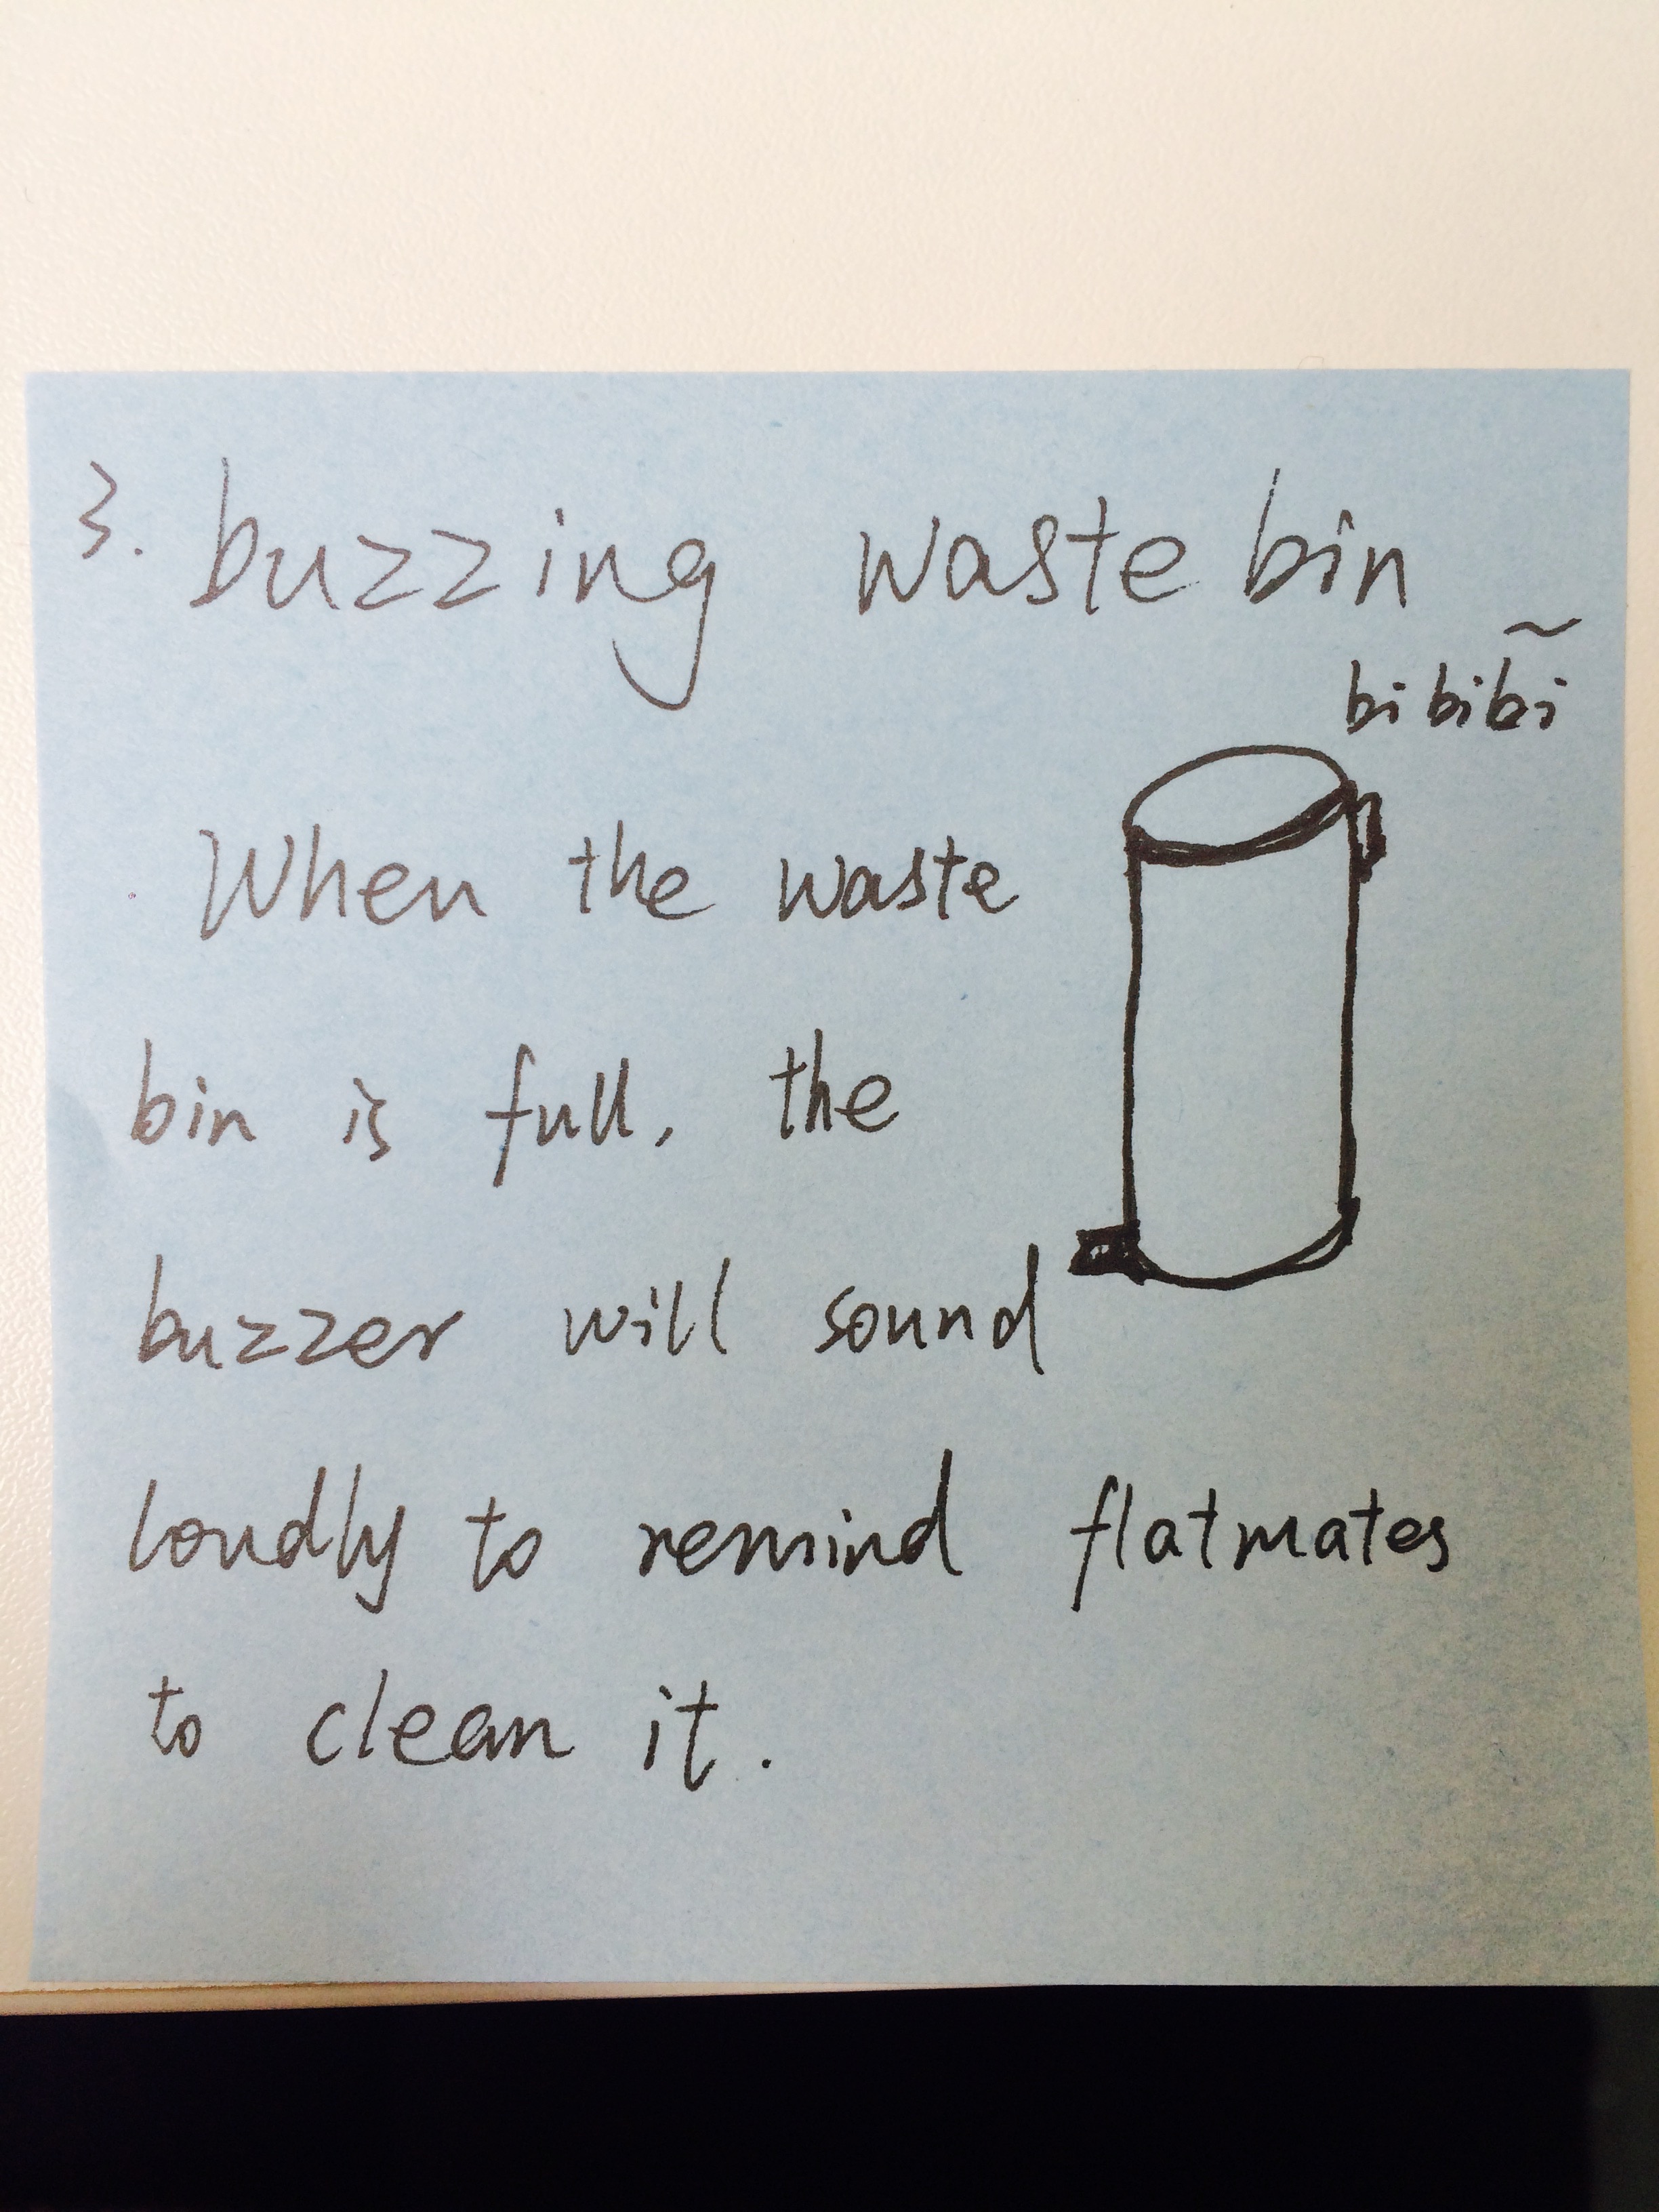 3. buzzing waste bin
~
bibibi
When the waste
bin is full, the
buzzer will sound
loudly to remind flatmates
to clean it.